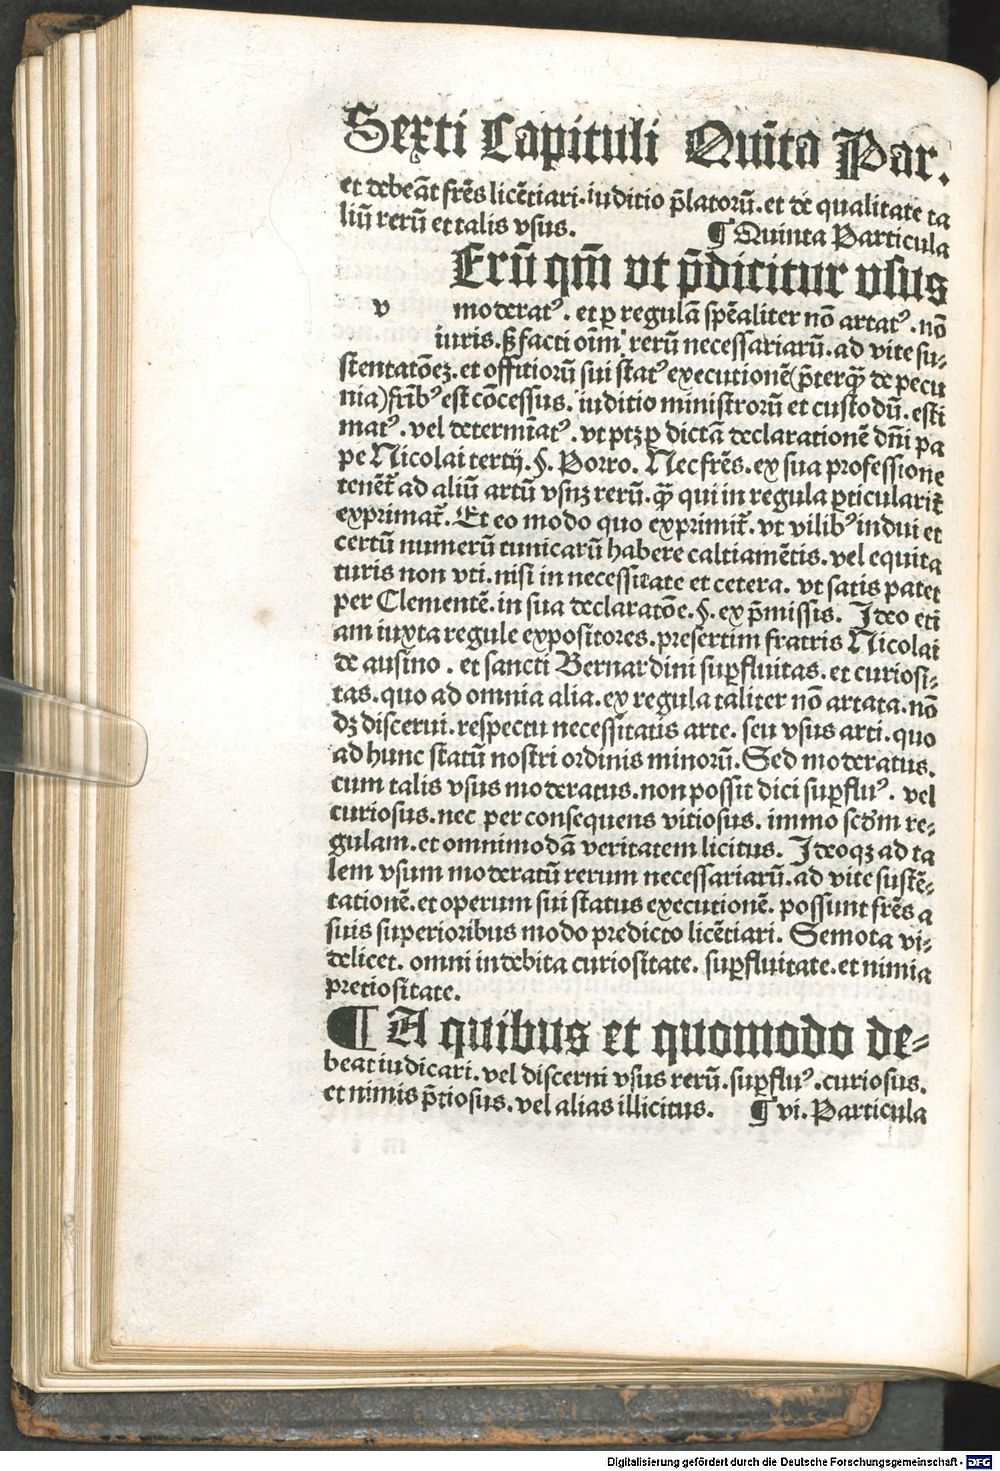 Sexti Capituli Quīta Par.
et debeāt frēs licētiari. iuditio p̄latorū. et de qualitate ta
liū rerū et talis vsus. ¶ Quinta Particula
Erū qm̄ vt p̄dicitur vsus
v moderatꝰ. et ꝑ regulā spēaliter nō artatꝰ. nō
iuris. ꝭ facti oīm rerū necessariarū. ad vite su⸗
stentatōeꝫ. et offitiorū sui statꝰ executionē (p̄terꝙ̄ de pecu
nia) frībꝰ est cōcessus. iuditio ministrorū et custodū. esti
matꝰ. vel determīatꝰ. vt ptꝫ ꝑ dictā declarationē dn̄i pa
pe Nicolai tertij. §. Porro. Nec frēs. ex sua professione
tenēt̄ ad aliū artū vsuꝫ rerū. ꝙ̄ qui in regula ꝑticularit̄
exprimat̄. Et eo modo quo exprimit̄. vt vilibꝰ indui et
certū numerū tunicarū habere caltiamētis. vel equita
turis non vti. nisi in necessitate et cetera. vt satis patet
per Clementē. in sua declaratōe. §. ex p̄missis. Ideo eti
am iuxta regule expositores. presertim fratris Nicolai
de ausino. et sancti Bernardini suꝑfluitas. et curiosi⸗
tas. quo ad omnia alia. ex regula taliter nō artata. nō
dꝫ discerui. respectu necessitatis arte. seu vsus arti. quo
ad hunc statū nostri ordinis minorū. Sed moderatus.
cum talis vsus moderatus. non possit dici suꝑfluꝰ. vel
curiosus. nec per consequens vitiosus. immo scd̄m re⸗
gulam. et omnimodā veritatem licitus. Ideoqꝫ ad ta
lem vsum moderatū rerum necessariarū. ad vite sustē⸗
tationē. et operum sui status executionē. possunt frēs a
suis superioribus modo predicto licētiari. Semota vi⸗
delicet. omni indebita curiositate. suꝑfluitate. et nimia
pretiositate.
¶ A quibus et quomodo de⸗
beat iudicari. vel discerni vsus rerū. suꝑfluꝰ. curiosus.
et nimis p̄tiosus. vel alias illicitus. ¶ vi. Particula
Digitalisierung gefördert durch die Deutsche Forschungsgemeinschaft - DFG